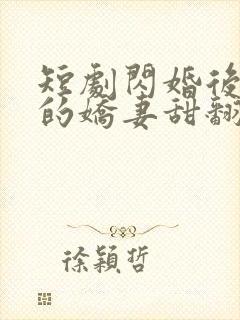 短劇閃婚後
的嬌妻甜翻
徐穎哲